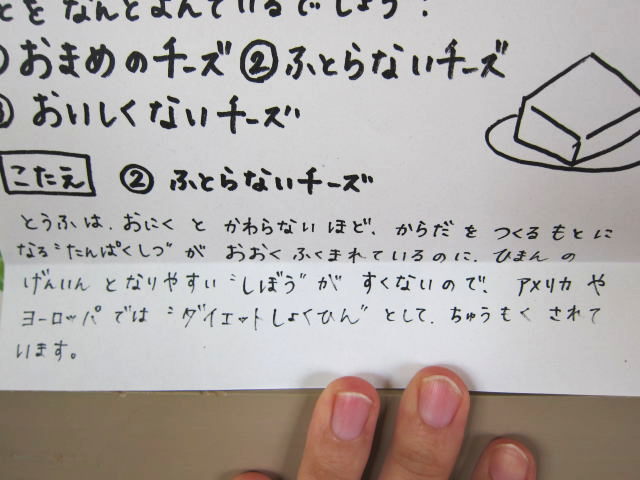 とを なんとよんでいるでしょう?
おまめのチーズ ②ふとらないチーズ
③ おいしくないチーズ
こたえ ② ふとらないチーズ
とうふは、おにく と かわらない ほど、からだ を つくる もと に
なる"たんぱくしつ"が おおく ふくまれているのに、ひまん の
げんいん と なりやすい "しぼう"が すくないので、アメリカ や
ヨーロッパ では "ダイエットしょくひん" として、ちゅうもく されて
います。